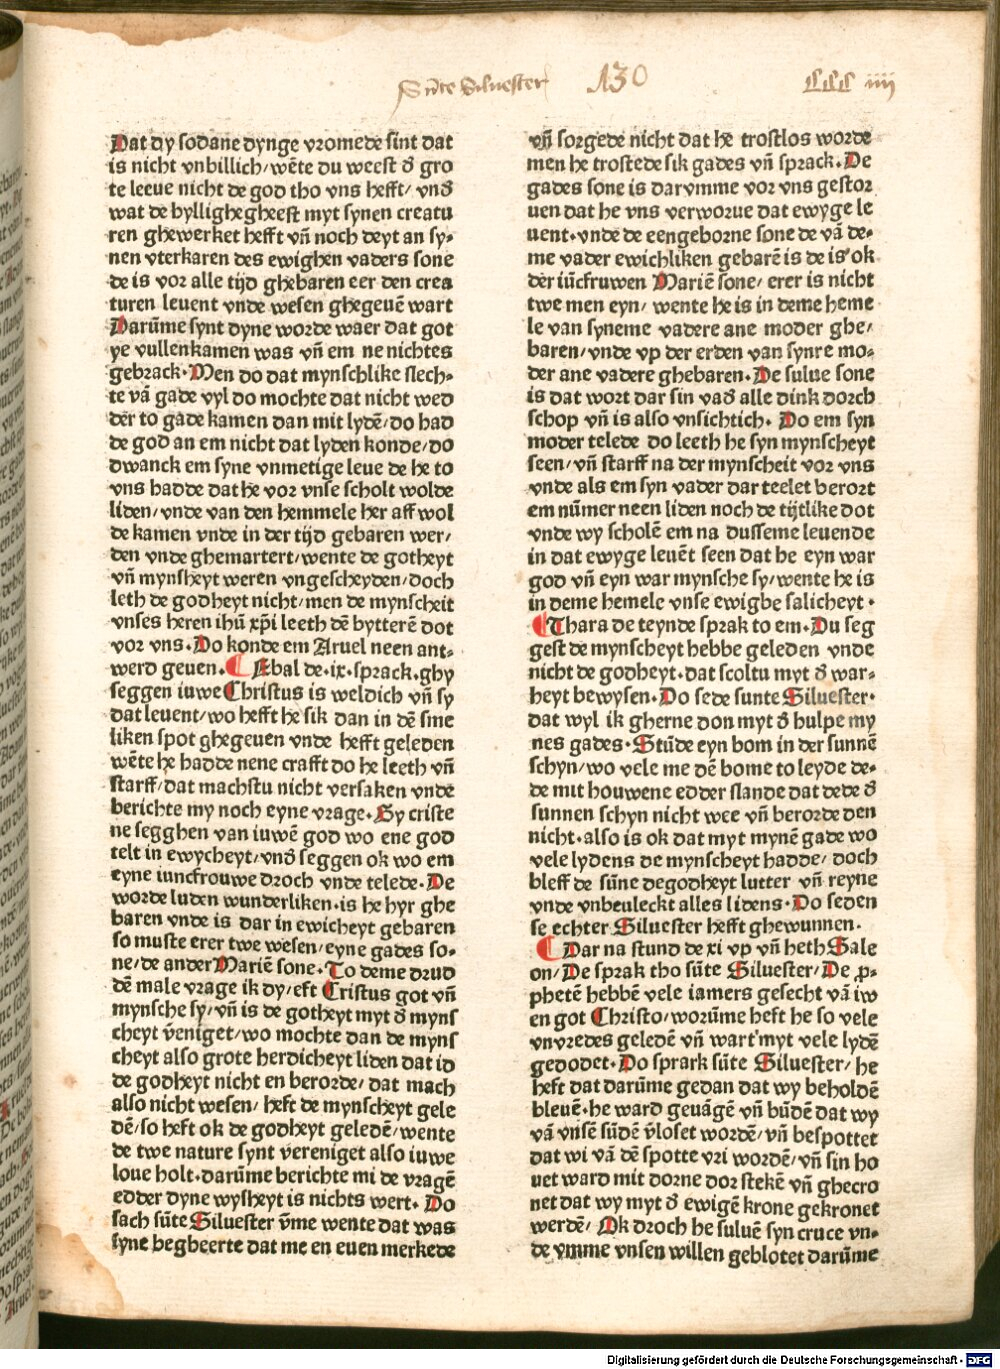 Sūte Siluester 130 CCC iiii
Dat dy sodane dynge vromede sint dat
is nicht vnbillich/wēte du weest đ gro
te leeue nicht de god tho vns hefft/ vnđ
wat de hyllighegheest myt synen creatu
ren ghewerket hefft vn̄ noch deyt an sy⸗
nen vterkaren des ewighen vaders sone
de is vor alle tijd ghebaren eer den crea
turen leuent vnde wesen ghegeuē wart
Darūme synt dyne worde waer dat got
ye vullenkamen was vn̄ em ne nichtes
gebrack. Men do dat mynschlike slech⸗
te vā gade vyl do mochte dat nicht wed
der to gade kamen dan mit lydē/do had
de god an em nicht dat lyden konde/do
dwanck em syne vnmetige leue de he to
vns hadde dat he vor vnse scholt wolde
liden/vnde van den hemmele her aff wol
de kamen vnde in der tijd gebaren wer/
den vnde ghemartert/wente de gotheyt
vn̄ mynsheyt weren vngescheyden/doch
leth de godheyt nicht/men de mynscheit
vnses heren ihū xp̄i leeth dē bytterē dot
vor vns. Do konde em Aruel neen ant⸗
werd geuen. ¶ Ebal de.ix.sprack.ghy
seggen iuwe Christus is weldich vn̄ sy
dat leuent/wo hefft he sik dan in dē sme
liken spot ghegeuen vnde hefft geleden
wēte he hadde nene crafft do he leeth vn̄
starff/dat machstu nicht versaken vnde
berichte my noch eyne vrage. Gy criste
ne segghen van iuwē god wo ene god
telt in ewycheyt/vnđ seggen ok wo em
eyne iuncfrouwe droch vnde telede. De
worde luden wunderliken.is he hyr ghe
baren vnde is dar in ewicheyt gebaren
so muste erer twe wesen/eyne gades so⸗
ne/de ander Mariē sone. To deme drud
dē male vrage ik dy/eft Cristus got vn̄
mynsche sy/vn̄ is de gotheyt myt đ myns
cheyt v̄eniget/wo mochte dan de myns
cheyt also grote herdicheyt liden dat id
de godheyt nicht en berorde/dat mach
also nicht wesen/heft de mynscheyt gele
dē/so heft ok de godheyt geledē/wente
de twe nature synt vereniget also iuwe
loue holt.darūme berichte mi de vragē
edder dyne wysheyt is nichts wert. Do
sach sūte Siluester v̄me wente dat was
syne begheerte dat me en euen merkede
vn̄ sorgede nicht dat he trostlos worde
men he trostede sik gades vn̄ sprack. De
gades sone is darvmme vor vns gestor
uen dat he vns verworue dat ewyge le
uent.vnde de eengeborne sone de vā de⸗
me vader ewichliken gebarē is de is ok
der iūcfruwen Mariē sone/ erer is nicht
twe men eyn/ wente he is in deme heme
le van syneme vadere ane moder ghe/
baren/vnde vp der erden van synre mo⸗
der ane vadere ghebaren. De sulue sone
is dat wort dar sin vađ alle dink dorch
schop vn̄ is also vnsichtich. Do em syn
moder telede do leeth he syn mynscheyt
seen/vn̄ starff na der mynscheit vor vns
vnde als em syn vader dar teelet berort
em nūmer neen liden noch de tijtlike dot
vnde wy scholē em na dusseme leuende
in dat ewyge leuēt seen dat he eyn war
god vn̄ eyn war mynsche sy/wente he is
in deme hemele vnse ewighe salicheyt.
¶ Thara de teynde sprak to em. Du seg
gest de mynscheyt hebbe geleden vnde
nicht de godheyt.dat scoltu myt đ war⸗
heyt bewysen. Do sede sunte Siluester.
dat wyl ik gherne don myt đ hulpe my
nes gades. Stūde eyn bom in der sunnē
schyn/wo vele me dē bome to leyde de⸗
de mit houwene edder slande dat dede đ
sunnen schyn nicht wee vn̄ berorde den
nicht.also is ok dat myt mynē gade wo
vele lydens de mynscheyt hadde/ doch
bleff de sūne degodheyt lutter vn̄ reyne
vnde vnbeuleckt alles lidens. Do seden
se echter Siluester hefft ghewunnen.
¶ Dar na stund de xi vp vn̄ heth Sale
on/De sprak tho sūte Siluester/De p̱⸗
phetē hebbē vele iamers gesecht vā iw
en got Christo/worūme heft he so vele
vnvredes geledē vn̄ wart myt vele lydē
gedodet. Do sprark sūte Siluester/ he
heft dat darūme gedan dat wy beholdē
bleuē.he ward geuāgē vn̄ būdē dat wy
vā vnsē sūdē v̄loset wordē/vn̄ bespottet
dat wi vā dē spotte vri wordē/vn̄ sin ho
uet ward mit dorne dor stekē vn̄ ghecro
net dat wy myt đ ewigē krone gekronet
werdē/ Ok droch he suluē syn cruce vn⸗
de vmme vnsen willen geblotet darūme
Digitalisierung gefördert durch die Deutsche Forschungsgemeinschaft - DFG